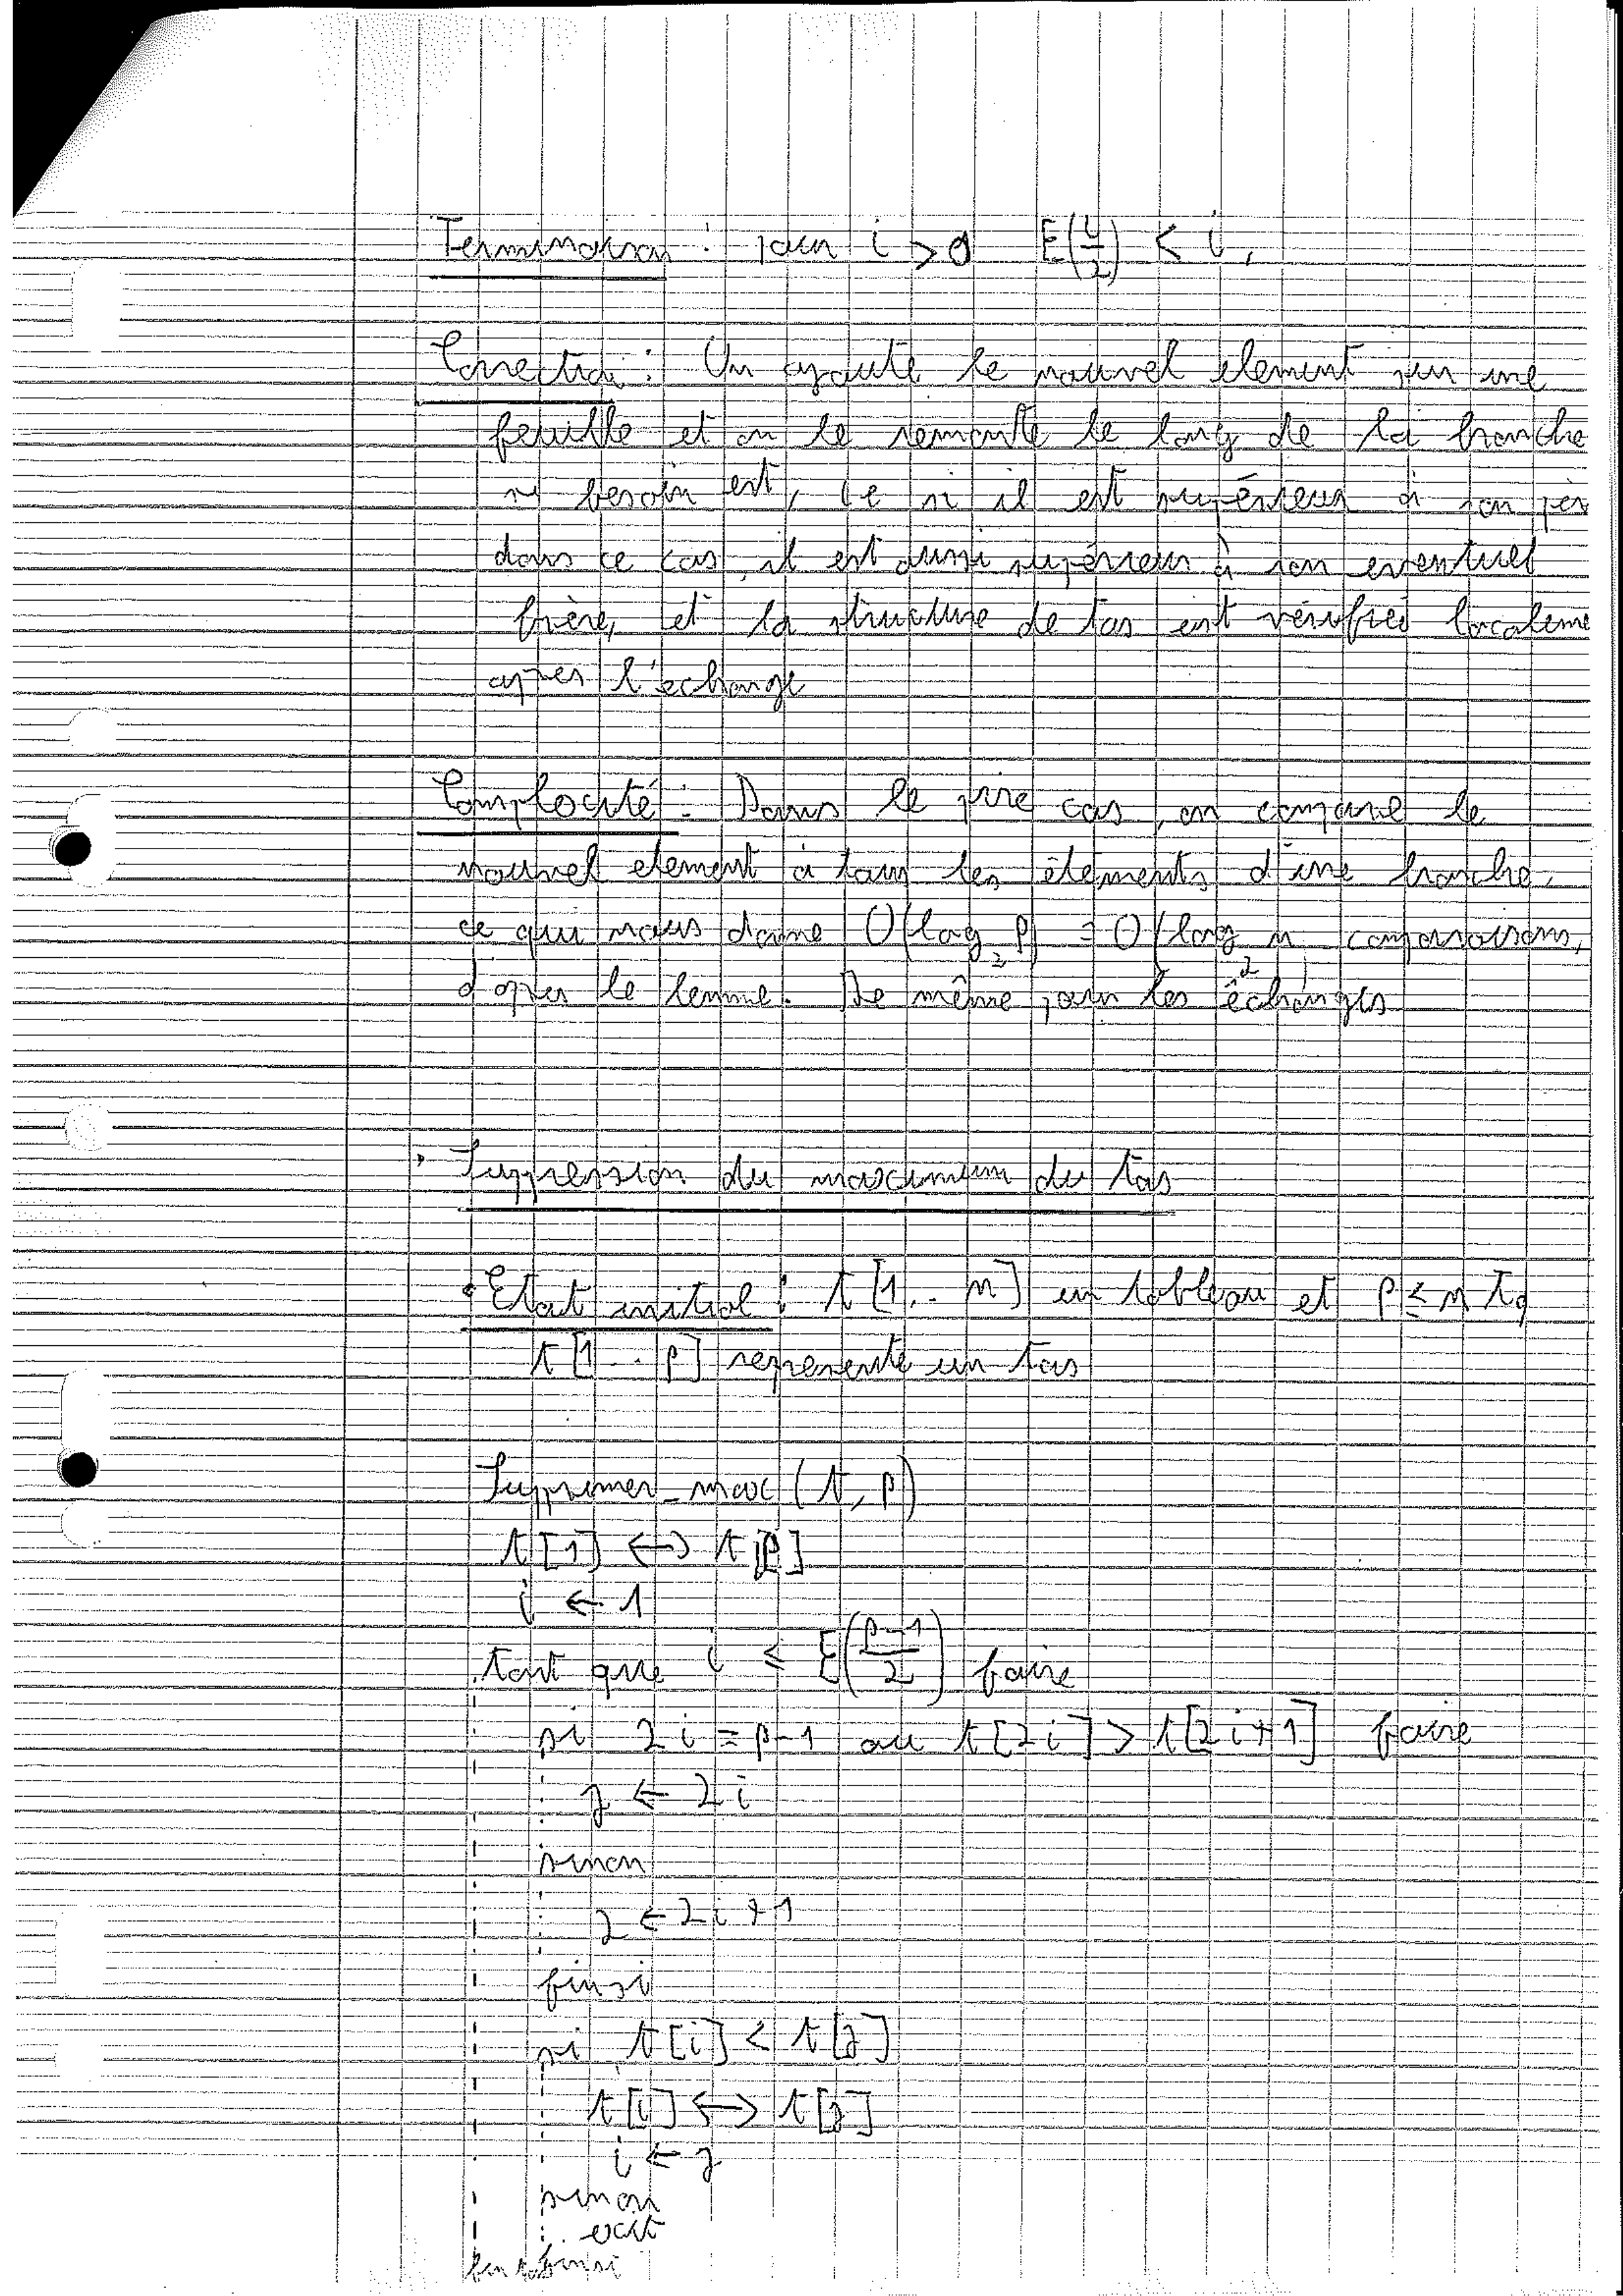 Terminaison : pour i > 0 E(i/2) < i,
Correction : On ajoute le nouvel element sur une
feuille et on le remonte le long de la branche
si besoin est, ie si il est supérieur à son pèr
dans ce cas, il est aussi supérieur à son eventuel
frère, et la structure de tas est vérifiée localeme
apres l'échange
Complexité : Dans le pire cas, on compare le
nouvel element à tous les éléments d'une branche,
ce qui nous donne O(log₂ p) = O(log₂ n) comparaisons,
d'apres le lemme. De même pour les échanges
Suppression du maximum du tas
• Etat initial : t[1..n] un tableau et p ≤ n tq
t[1..p] represente un tas
Supprimer_max(t, p)
t[1] ↔ t[p]
i ← 1
tant que i ≤ E((p-1)/2) faire
si 2i = p-1 ou t[2i] > t[2i+1] faire
j ← 2i
sinon
j ← 2i+1
finsi
si t[i] < t[j]
t[i] ↔ t[j]
i ← j
sinon
exit
finsi